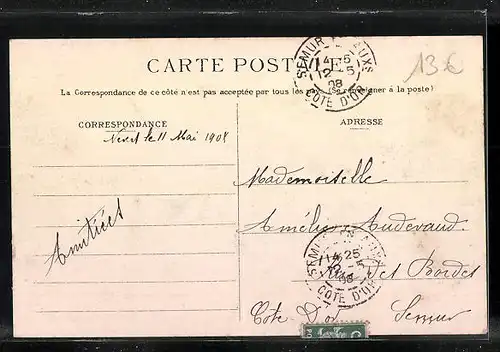 CARTE POSTALE
13 €
La Correspondance de ce côté n'est pas acceptée par tous les (Se renseigner à la poste)
SEMUR EN AUXS
14-5
12-5
08
COTE D'OR
CORRESPONDANCE
le 11 Mai 1908
Amitiés
ADRESSE
Mademoiselle
Amélie Audevaud
Rue des Bordes
Semur
Cote d'or
SEMUR EN AUX
14 25
12-5
08
COTE D'OR